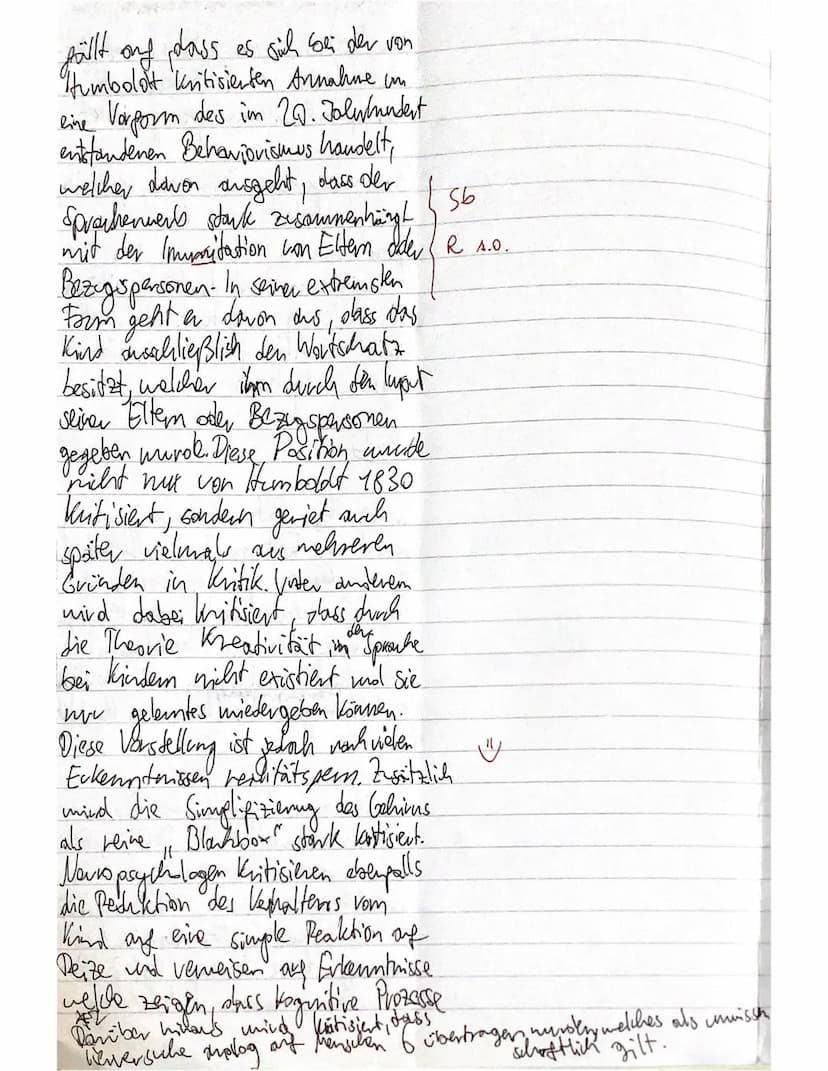 fällt auf, dass es sich bei der von
Humboldt kritisierten Annahme um
eine Vorform des im 20. Jahrhundert
entstandenen Behaviorismus handelt,
welcher davon ausgeht, dass der
Spracherwerb stark zusammenhängt
Sb
mit der Immitation von Eltern oder
R s.o.
Bezugspersonen. In seiner extremsten
Form geht er davon aus, dass das
Kind ausschließlich den Wortschatz
besitzt, welcher ihm durch den Input
seiner Eltern oder Bezugspersonen
gegeben wurde. Diese Position wurde
nicht nur von Humboldt 1830
kritisiert, sondern geriet auch
später vielmals aus mehreren
Gründen in Kritik. Unter anderem
wird dabei kritisiert, dass durch
die Theorie Kreativität in der Sprache
bei Kindern nicht existiert und sie
nur gelerntes wiedergeben können.
Diese Vorstellung ist jedoch nach vielen
Erkenntnissen realitätsfern. Zusätzlich
wird die Simplifizierung des Gehirns
als reine „Blackbox" stark kritisiert.
Neuropsychologen kritisieren ebenfalls
die Reduktion des Verhaltens vom
Kind auf eine simple Reaktion auf
Reize und verweisen auf Erkenntnisse
welche zeigen, dass kognitive Prozesse
Darüber hinaus wird kritisiert, dass
Tierversuche analog auf Menschen übertragen wurden, welches als unwissen
schaftlich gilt.